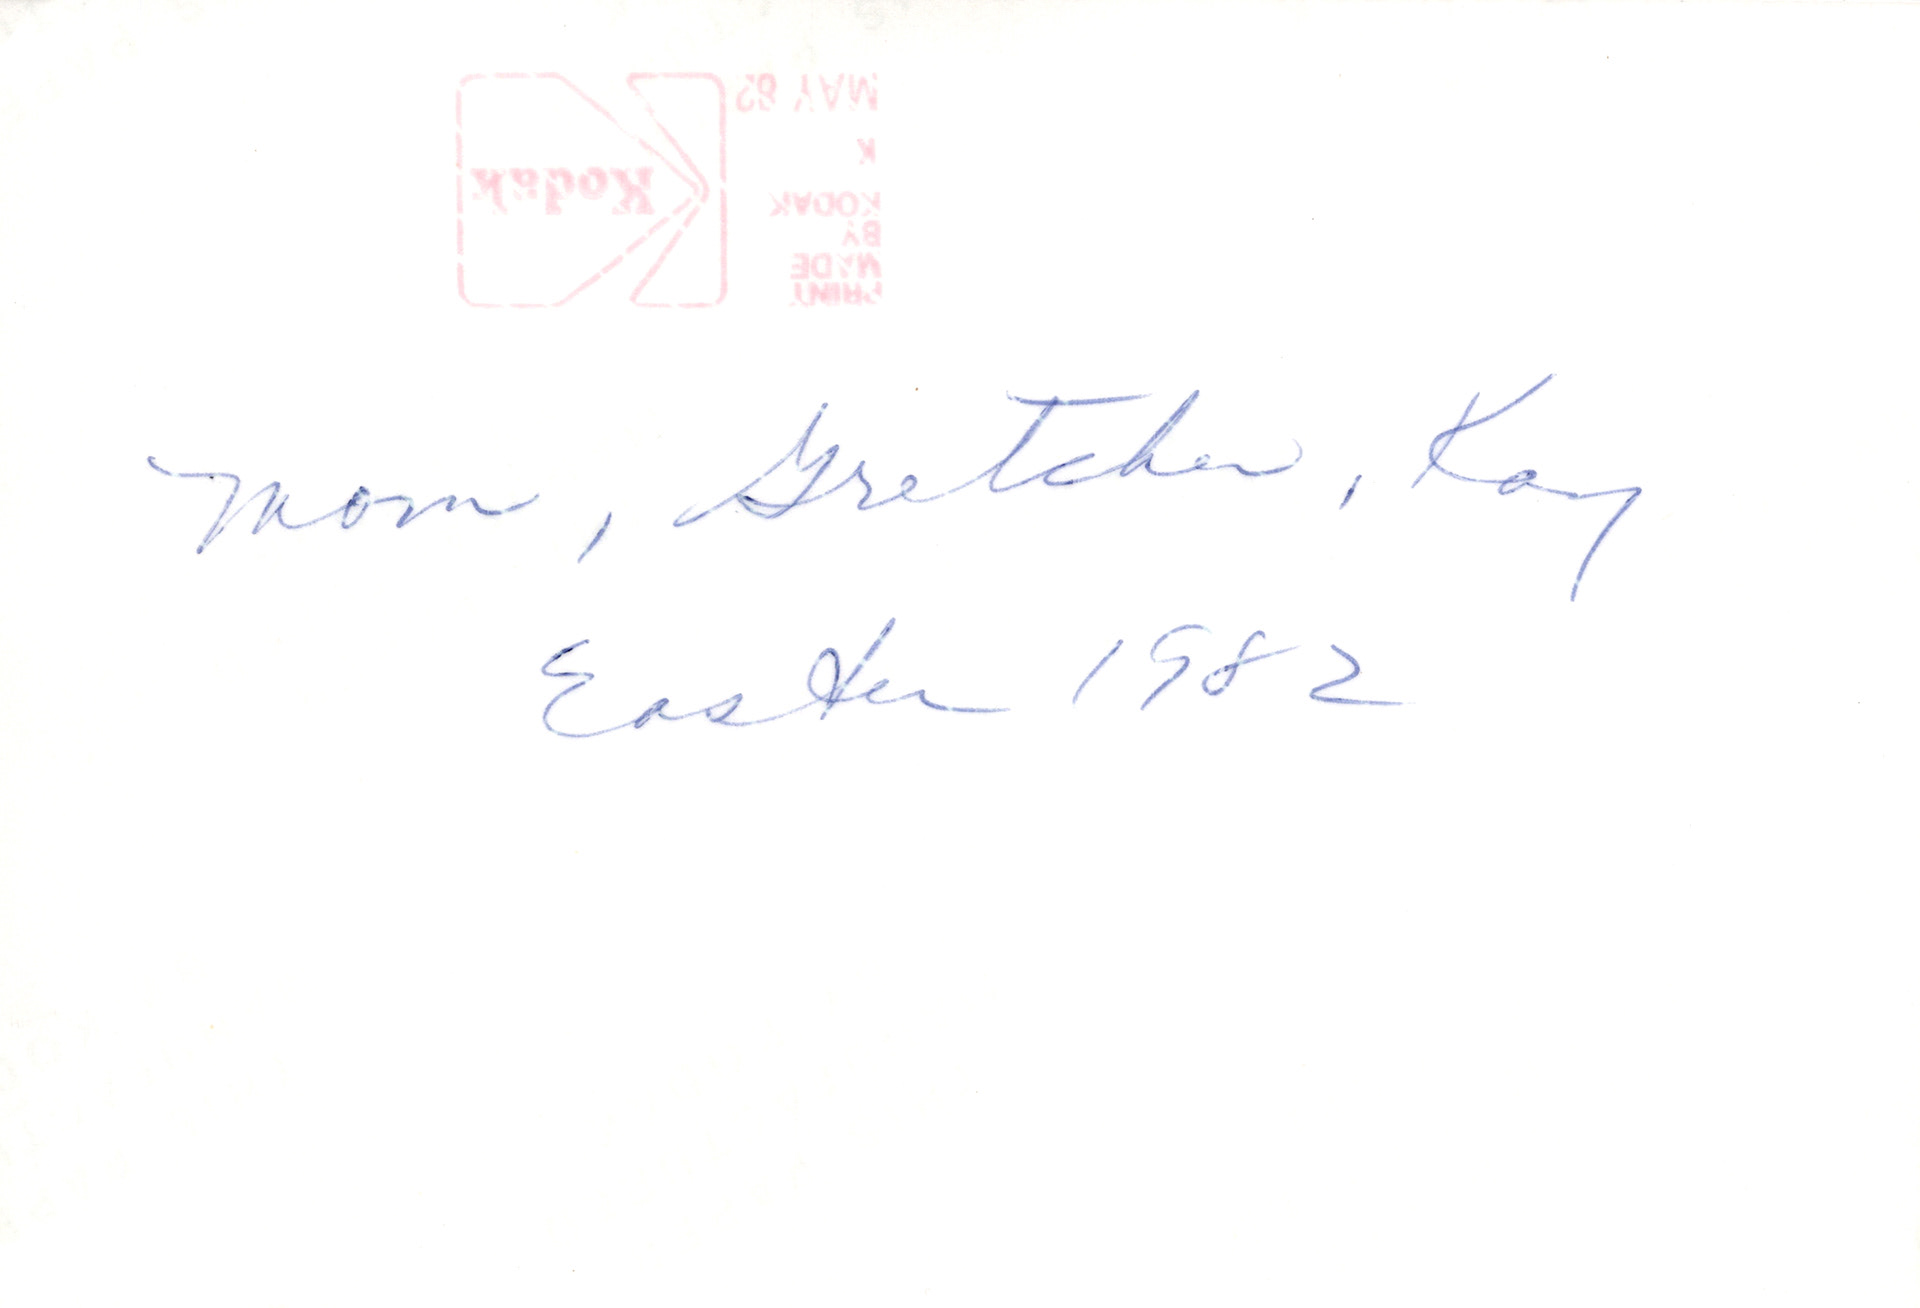 MAY 82
K
KODAK
BY
MADE
PRINT
Kodak
Mom, Gretchen, Kay
Easter 1982